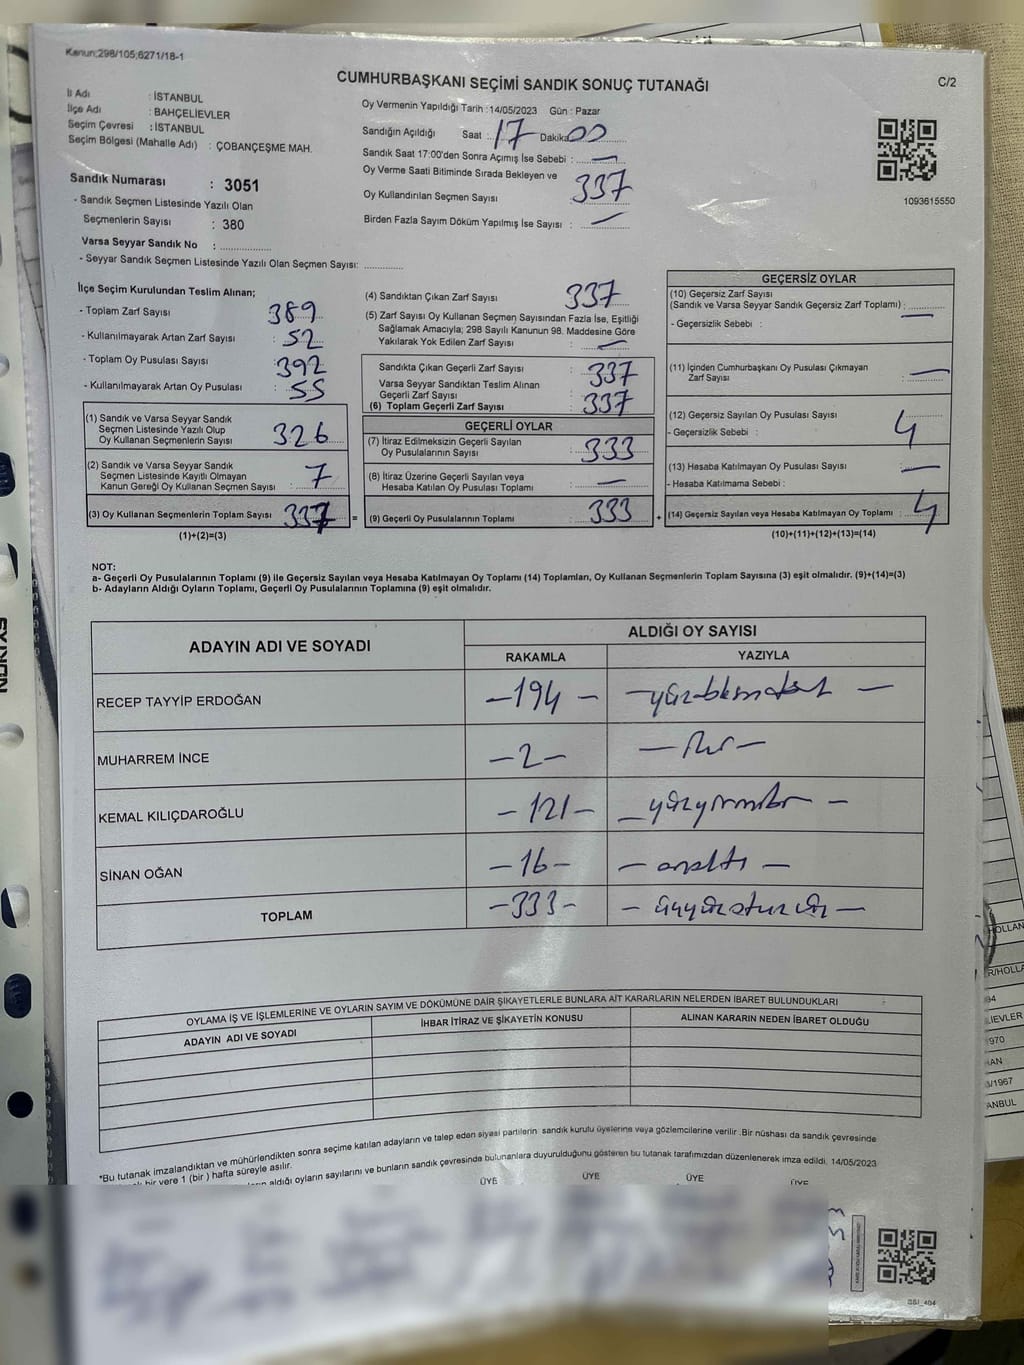 Kanun;298/105;6271/18-1
CUMHURBAŞKANI SEÇİMİ SANDIK SONUÇ TUTANAĞI
C/2
İl Adı : İSTANBUL
İlçe Adı : BAHÇELİEVLER
Seçim Çevresi : İSTANBUL
Seçim Bölgesi (Mahalle Adı) : ÇOBANÇEŞME MAH.
Sandık Numarası : 3051
- Sandık Seçmen Listesinde Yazılı Olan
Seçmenlerin Sayısı : 380
Varsa Seyyar Sandık No :
- Seyyar Sandık Seçmen Listesinde Yazılı Olan Seçmen Sayısı:
Oy Vermenin Yapıldığı Tarih :14/05/2023 Gün : Pazar
Sandığın Açıldığı Saat : 17 Dakika 00
Sandık Saat 17:00'den Sonra Açımış İse Sebebi : —
Oy Verme Saati Bitiminde Sırada Bekleyen ve
Oy Kullandırılan Seçmen Sayısı : 337
Birden Fazla Sayım Döküm Yapılmış İse Sayısı : —
1093615550
İlçe Seçim Kurulundan Teslim Alınan;
- Toplam Zarf Sayısı : 389
- Kullanılmayarak Artan Zarf Sayısı : 52
- Toplam Oy Pusulası Sayısı : 392
- Kullanılmayarak Artan Oy Pusulası : 55
(1) Sandık ve Varsa Seyyar Sandık
Seçmen Listesinde Yazılı Olup
Oy Kullanan Seçmenlerin Sayısı : 326
(2) Sandık ve Varsa Seyyar Sandık
Seçmen Listesinde Kayıtlı Olmayan
Kanun Gereği Oy Kullanan Seçmen Sayısı : 7
(3) Oy Kullanan Seçmenlerin Toplam Sayısı : 337 =
(1)+(2)=(3)
(4) Sandıktan Çıkan Zarf Sayısı : 337
(5) Zarf Sayısı Oy Kullanan Seçmen Sayısından Fazla İse, Eşitliği
Sağlamak Amacıyla; 298 Sayılı Kanunun 98. Maddesine Göre
Yakılarak Yok Edilen Zarf Sayısı : —
Sandıkta Çıkan Geçerli Zarf Sayısı : 337
Varsa Seyyar Sandıktan Teslim Alınan
Geçerli Zarf Sayısı :
(6) Toplam Geçerli Zarf Sayısı : 337
GEÇERLİ OYLAR
(7) İtiraz Edilmeksizin Geçerli Sayılan
Oy Pusulalarının Sayısı : 333
(8) İtiraz Üzerine Geçerli Sayılan veya
Hesaba Katılan Oy Pusulası Toplamı : —
(9) Geçerli Oy Pusulalarının Toplamı : 333 +
GEÇERSİZ OYLAR
(10) Geçersiz Zarf Sayısı
(Sandık ve Varsa Seyyar Sandık Geçersiz Zarf Toplamı) : —
- Geçersizlik Sebebi :
(11) İçinden Cumhurbaşkanı Oy Pusulası Çıkmayan
Zarf Sayısı : —
(12) Geçersiz Sayılan Oy Pusulası Sayısı : 4
- Geçersizlik Sebebi :
(13) Hesaba Katılmayan Oy Pusulası Sayısı : —
- Hesaba Katılmama Sebebi :
(14) Geçersiz Sayılan veya Hesaba Katılmayan Oy Toplamı : 4
(10)+(11)+(12)+(13)=(14)
NOT:
a- Geçerli Oy Pusulalarının Toplamı (9) ile Geçersiz Sayılan veya Hesaba Katılmayan Oy Toplamı (14) Toplamları, Oy Kullanan Seçmenlerin Toplam Sayısına (3) eşit olmalıdır. (9)+(14)=(3)
b- Adayların Aldığı Oyların Toplamı, Geçerli Oy Pusulalarının Toplamına (9) eşit olmalıdır.
ADAYIN ADI VE SOYADI
ALDIĞI OY SAYISI
RAKAMLA YAZIYLA
RECEP TAYYİP ERDOĞAN –194– –yüzdoksandört–
MUHARREM İNCE –2– –iki–
KEMAL KILIÇDAROĞLU –121– –yüzyirmibir–
SİNAN OĞAN –16– –onaltı–
TOPLAM –333– –üçyüzotuzüç–
OYLAMA İŞ VE İŞLEMLERİNE VE OYLARIN SAYIM VE DÖKÜMÜNE DAİR ŞİKAYETLERLE BUNLARA AİT KARARLARIN NELERDEN İBARET BULUNDUKLARI
ADAYIN ADI VE SOYADI İHBAR İTİRAZ VE ŞİKAYETİN KONUSU ALINAN KARARIN NEDEN İBARET OLDUĞU
*Bu tutanak imzalandıktan ve mühürlendikten sonra seçime katılan adayların ve talep eden siyasi partilerin sandık kurulu üyelerine veya gözlemcilerine verilir. Bir nüshası da sandık çevresinde
bir yere 1 (bir) hafta süreyle asılır.
aldığı oyların sayılarını ve bunların sandık çevresinde bulunanlara duyurulduğunu gösteren bu tutanak tarafımızdan düzenlenerek imza edildi. 14/05/2023
ÜYE ÜYE ÜYE ÜYE
HOLLAN
R/HOLLA
LIEVLER
970
HAN
/1967
ANBUL